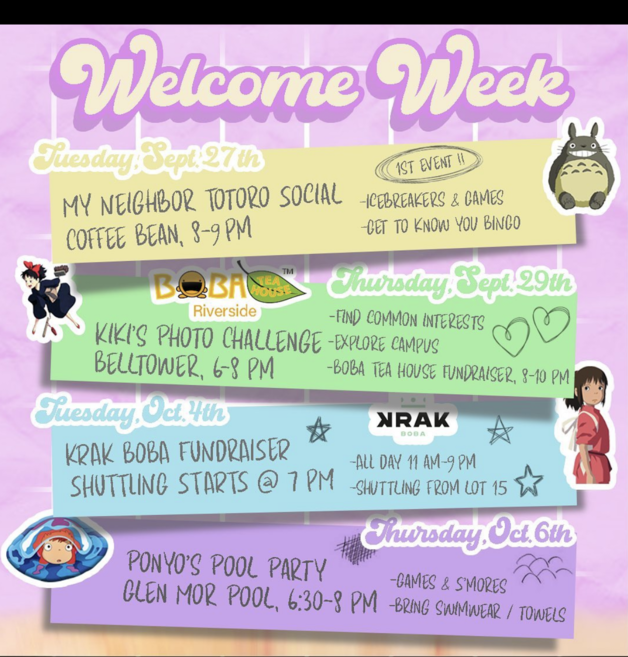 Welcome Week
Tuesday, Sept. 27th
1ST EVENT !!
MY NEIGHBOR TOTORO SOCIAL
COFFEE BEAN, 8-9 PM
-ICEBREAKERS & GAMES
-GET TO KNOW YOU BINGO
BOBA TEA HOUSE ™
Riverside
Thursday, Sept. 29th
KIKI'S PHOTO CHALLENGE
BELLTOWER, 6-8 PM
-FIND COMMON INTERESTS
-EXPLORE CAMPUS
-BOBA TEA HOUSE FUNDRAISER, 8-10 PM
Tuesday, Oct. 4th
KRAK
BOBA
KRAK BOBA FUNDRAISER
SHUTTLING STARTS @ 7 PM
-ALL DAY 11 AM-9 PM
-SHUTTLING FROM LOT 15
Thursday, Oct. 6th
PONYO'S POOL PARTY
GLEN MOR POOL, 6:30-8 PM
-GAMES & S'MORES
-BRING SWIMWEAR / TOWELS